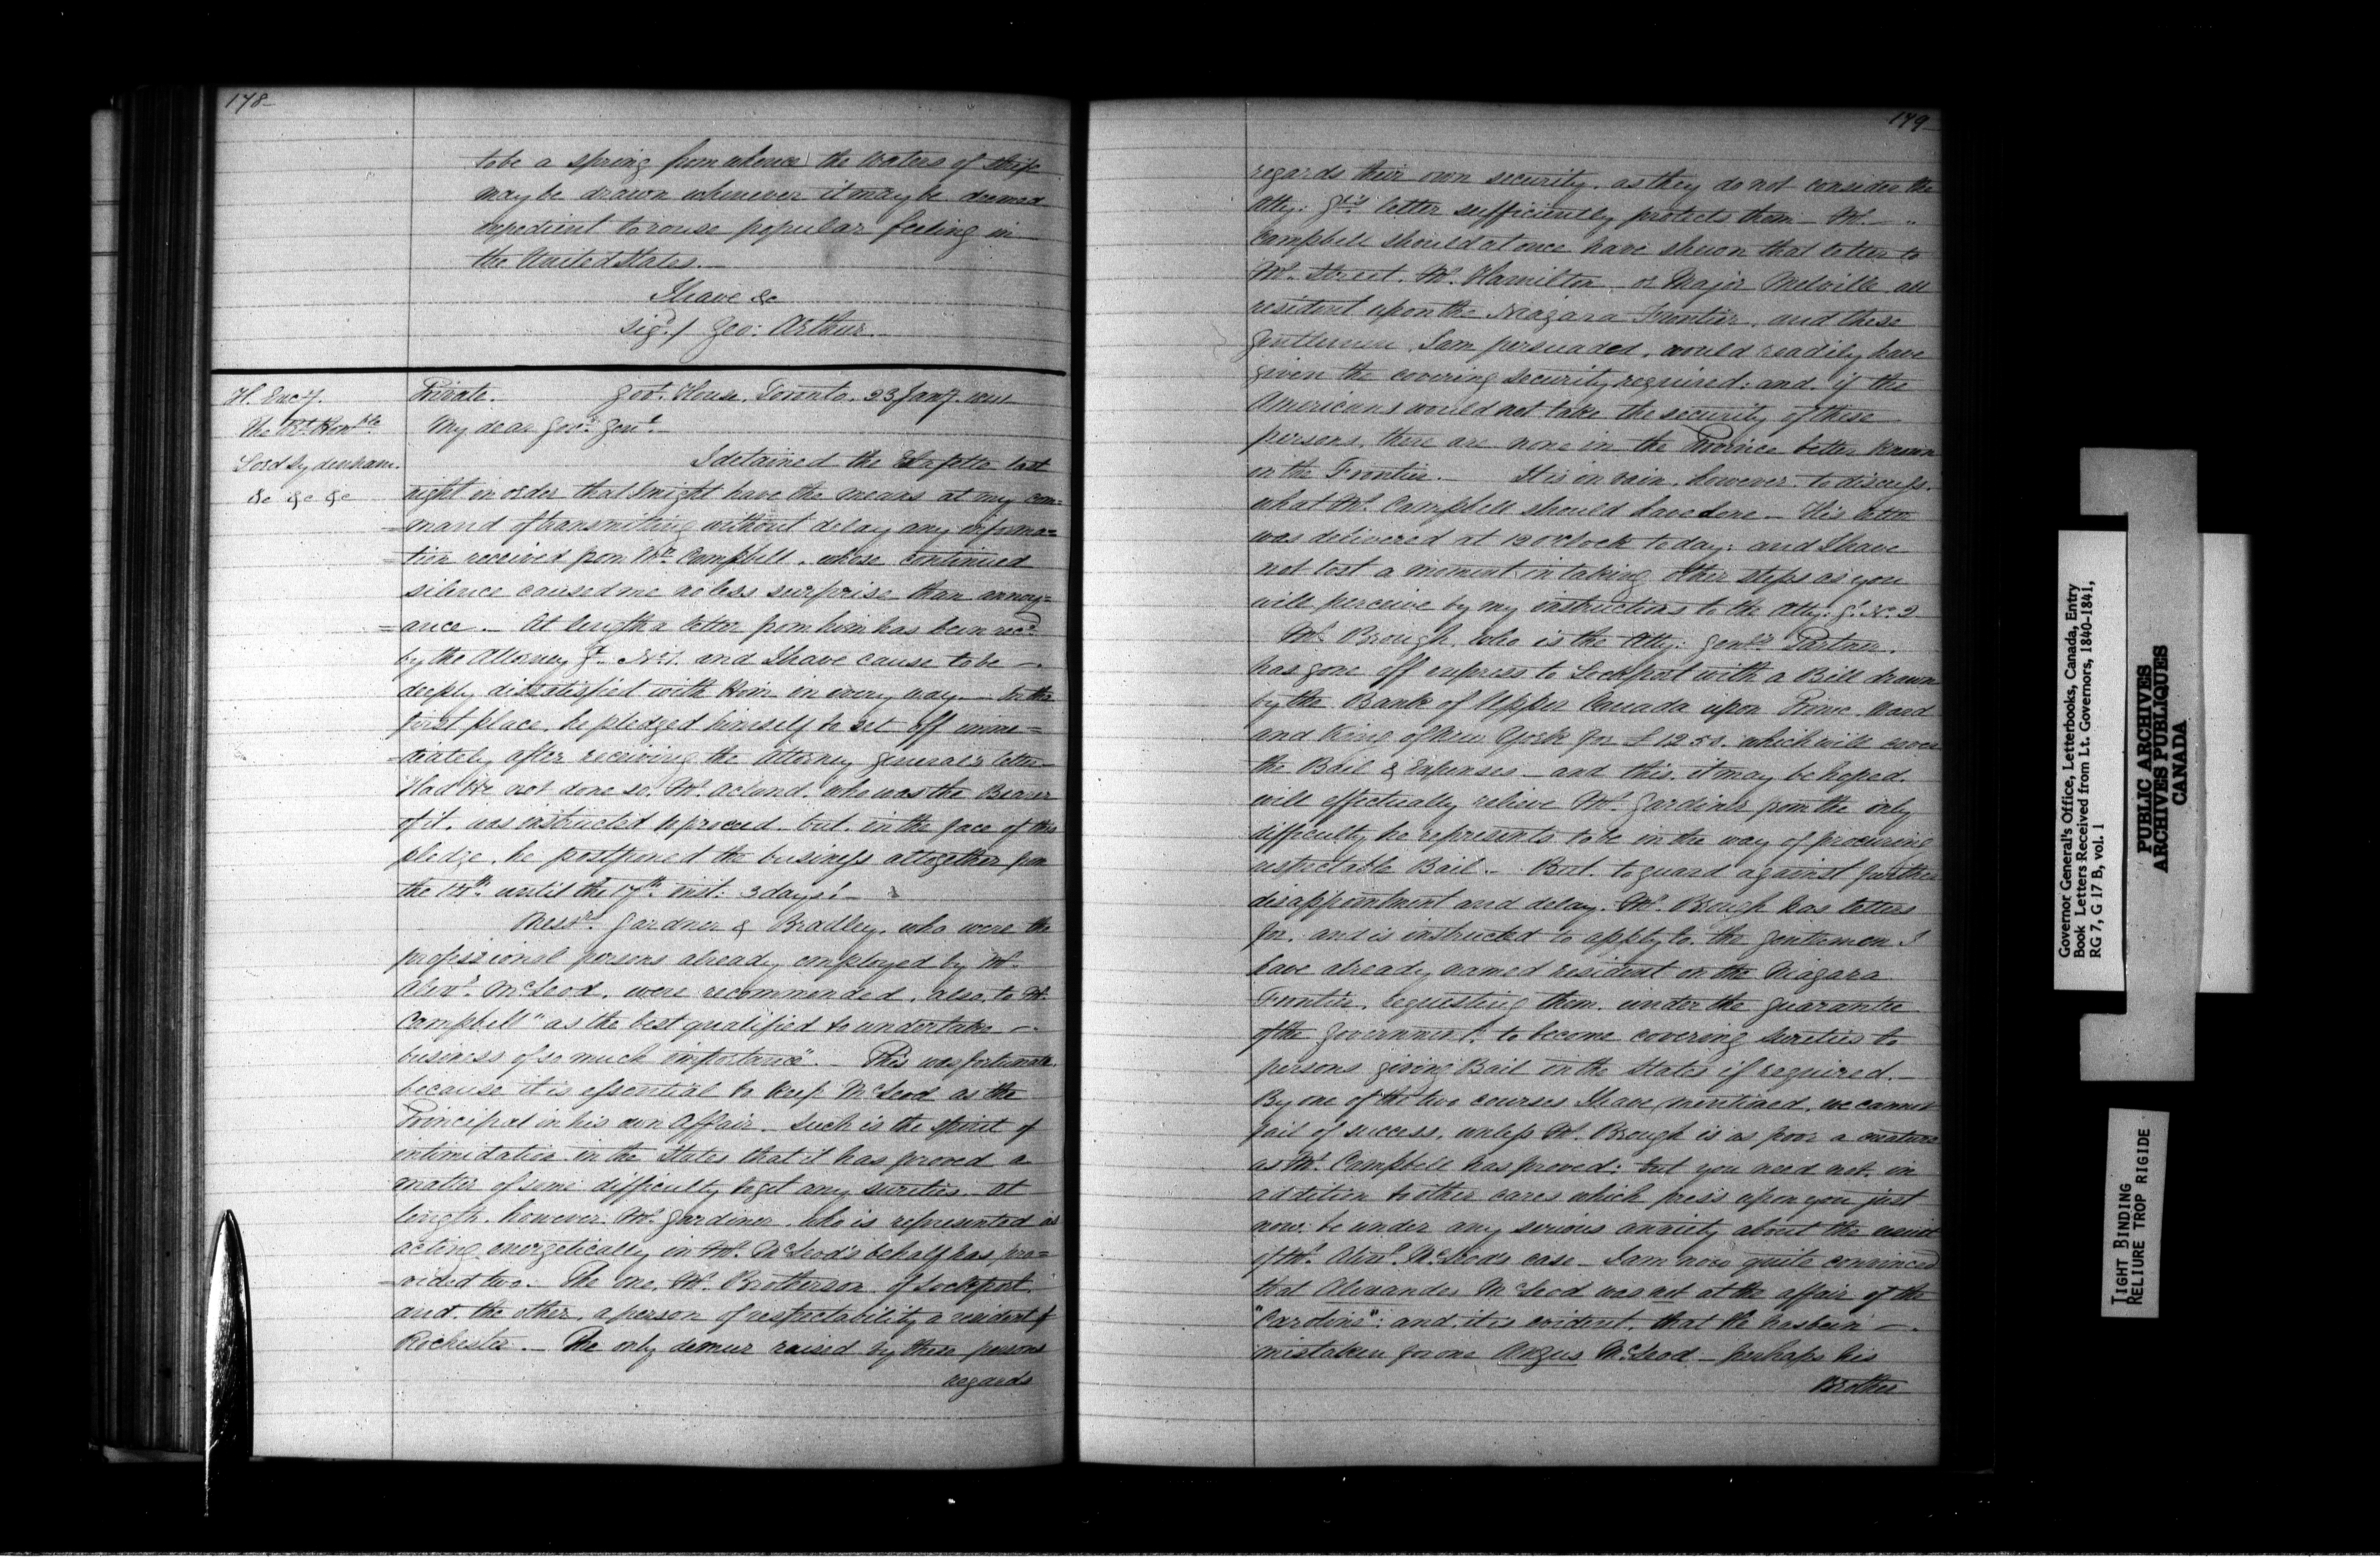 178-
to be a spring from whence the waters of strife
may be drawn whenever it may be deemed
expedient to rouse popular feeling in
the United States.—
I have &c
Sig.d/ Geo: Arthur.
H. Ency.
The Rt. Honble.
Lord Sydenham.
&c &c &c
Private. Govt. House, Toronto. 23 Jany.
My dear Govr. Genl.
I detained the Estafette last
night in order that I might have the means at my com=
=mand of transmitting without delay any informa=
=tion received from Mr. Campbell, whose continued
silence caused me no less surprise than annoy=
=ance.— At length a letter from him has been recd.
by the Attorney Gl. No. 1. and I have cause to be —.
deeply dissatisfied with him in every way.— In the
first place, he pledged himself to set off imme=
=diately after receiving the Attorney General's letter—
Had He not done so, Mr. Acland, who was the Bearer
of it, was instructed to proceed. but, in the face of this
pledge, he postponed the business altogether from
the 14th. until the 17th. inst: 3 days!—
Messrs. Gardner & Bradley, who were the
professional persons already employed by Mr.
Alexr. McLeod, were recommended, also, to Mr.
Campbell "as the best qualified to undertake —.
business of so much importance".— This was fortunate,
because it is essential to keep McLeod as the
Principal in his own Affair. Such is the spirit of
intimidation in the States that it has proved a
matter of some difficulty to get any sureties. At
length, however, Mr. Gardiner, who is represented as
acting energetically in Mr. McLeod's behalf has pro=
=vided two.— The one, Mr. Brotherson of Lockport,
and, the other, a person of respectability a resident of
Rochester.— The only demur raised by these persons
regards
179-
regards their own security, as they do not consider the
Atty: Gl's letter sufficiently protects them— Mr. —"
Campbell should at once have shewn that letter to
Mr. Street, Mr. Hamilton or Major Melville all
resident upon the Niagara Frontier, and these
Gentlemen, I am persuaded, would readily have
given the covering security required: and, if the
Americans would not take the security of these
persons, there are none in the Province better known
on the Frontier.— It is in vain, however, to discuss,
what Mr. Campbell should have done— His letter
was delivered at 12 o'clock today: and I have
not lost a moment in taking other steps as you
will perceive by my instructions to the Atty: Gl. No. 2
Mr. Brough, who is the Atty: Genl's Partner,
has gone off express to Lockport with a Bill drawn
by the Bank of Upper Canada upon Prime Ward
and King of New York for £1250. which will cover
the Bail & Expenses— and this, it may be hoped,
will effectually relieve Mr. Gardiner from the only
difficulty he represents to be in the way of procuring
respectable Bail.— But, to guard against further
disappointment and delay, Mr. Brough has letters
for, and is instructed to apply to, the gentlemen I
have already named resident on the Niagara
Frontier, requesting them, under the guarantee
of the Government, to become covering sureties to
persons giving Bail in the States if required.—
By one of the two courses I have mentioned, we cannot
fail of success, unless Mr. Brough is as poor a creature
as Mr. Campbell has proved: but you need not, in
addition to other cares which press upon you just
now, be under any serious anxiety about the
of Mr. Alexr. McLeod's case— I am now quite convinced
that Alexander McLeod was not at the affair of the
"Caroline": and, it is evident, that He has been —.
mistaken for one Angus McLeod— perhaps his
Brother
Governor General's Office, Letterbooks, Canada, Entry
Book Letters Received from Lt. Governors, 1840-1841,
RG 7, G 17 B, vol. 1
PUBLIC ARCHIVES
ARCHIVES PUBLIQUES
CANADA
TIGHT BINDING
RELIURE TROP RIGIDE